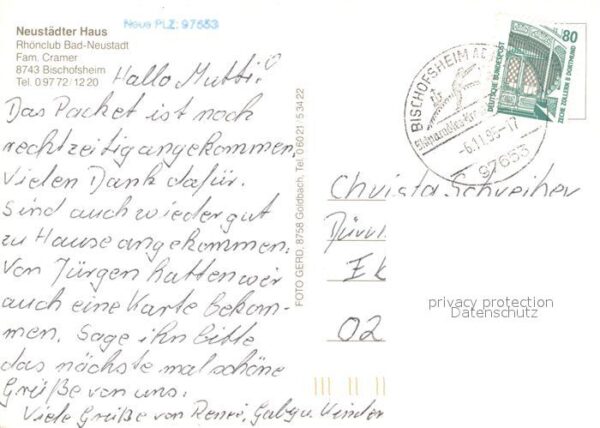 Neue PLZ: 97653
Neustädter Haus
Rhönclub Bad-Neustadt
Fam. Cramer
8743 Bischofsheim
Tel. 0 97 72 / 12 20
Hallo Mutti!
Das Packet ist noch
rechtzeitig angekommen.
Vielen Dank dafür.
Sind auch wieder gut
zu Hause angekommen.
Von Jürgen hatten wir
auch eine Karte bekom-
men. Sage ihn bitte
das nächste mal schöne
Grüße von uns.
Viele Grüße von René, Gaby u. Kinder
FOTO GERD, 8758 Goldbach, Tel. 0 60 21 / 5 34 22
BISCHOFSHEIM A.D.
-6.11.95-17
97653
80
DEUTSCHE BUNDESPOST
ZECHE ZOLLERN II DORTMUND
Christa Schreiber
Ek
02
privacy protection
Datenschutz